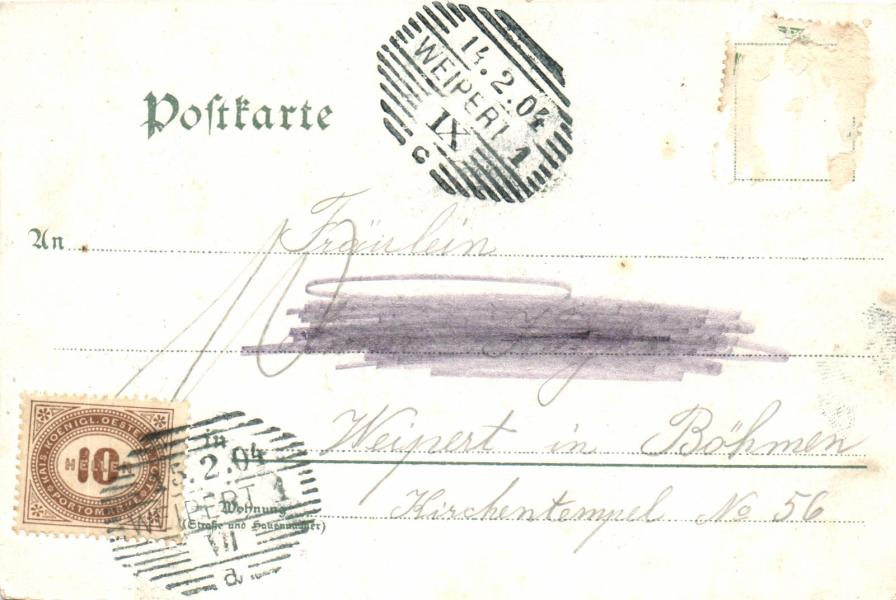 14.2.04
WEIPERT 1
IX
c
Postkarte
An
Fräulein
10
Weipert in Böhmen
KAIS. KOENIGL. OESTERR. POST
10
HELLER
PORTOMARKE
in
15.2.04
WEIPERT 1
VII
a
Wohnung
(Straße und Hausnummer)
Kirchentempel No 56